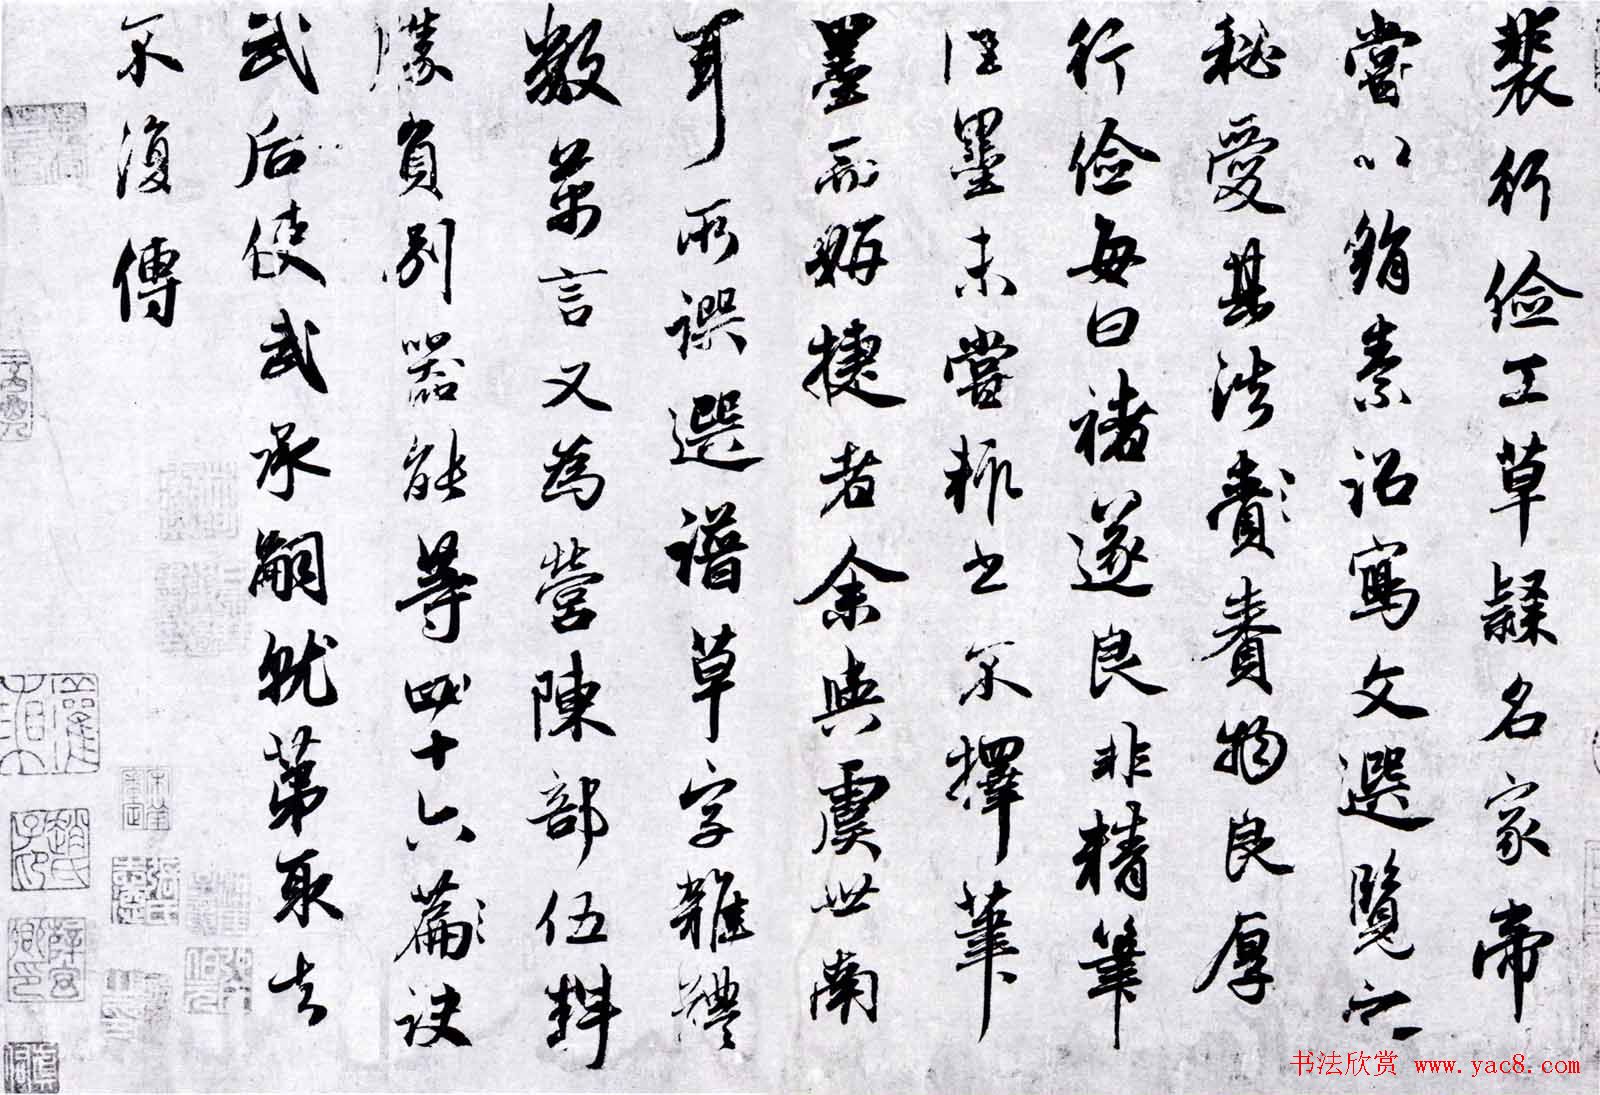 裴行俭工草隸名家帝
嘗以絹素詔寫文選覽之
秘愛其法賚賚物良厚
行俭每曰褚遂良非精筆
佳墨未嘗輒書不擇筆
墨而妍捷者余與虞世南
耳所譔選譜草字雜體
數萬言又為營陳部伍料
勝負別器能等四十六篇訣
武后使武承嗣就第取去
不復傳
书法欣赏 www.yac8.com